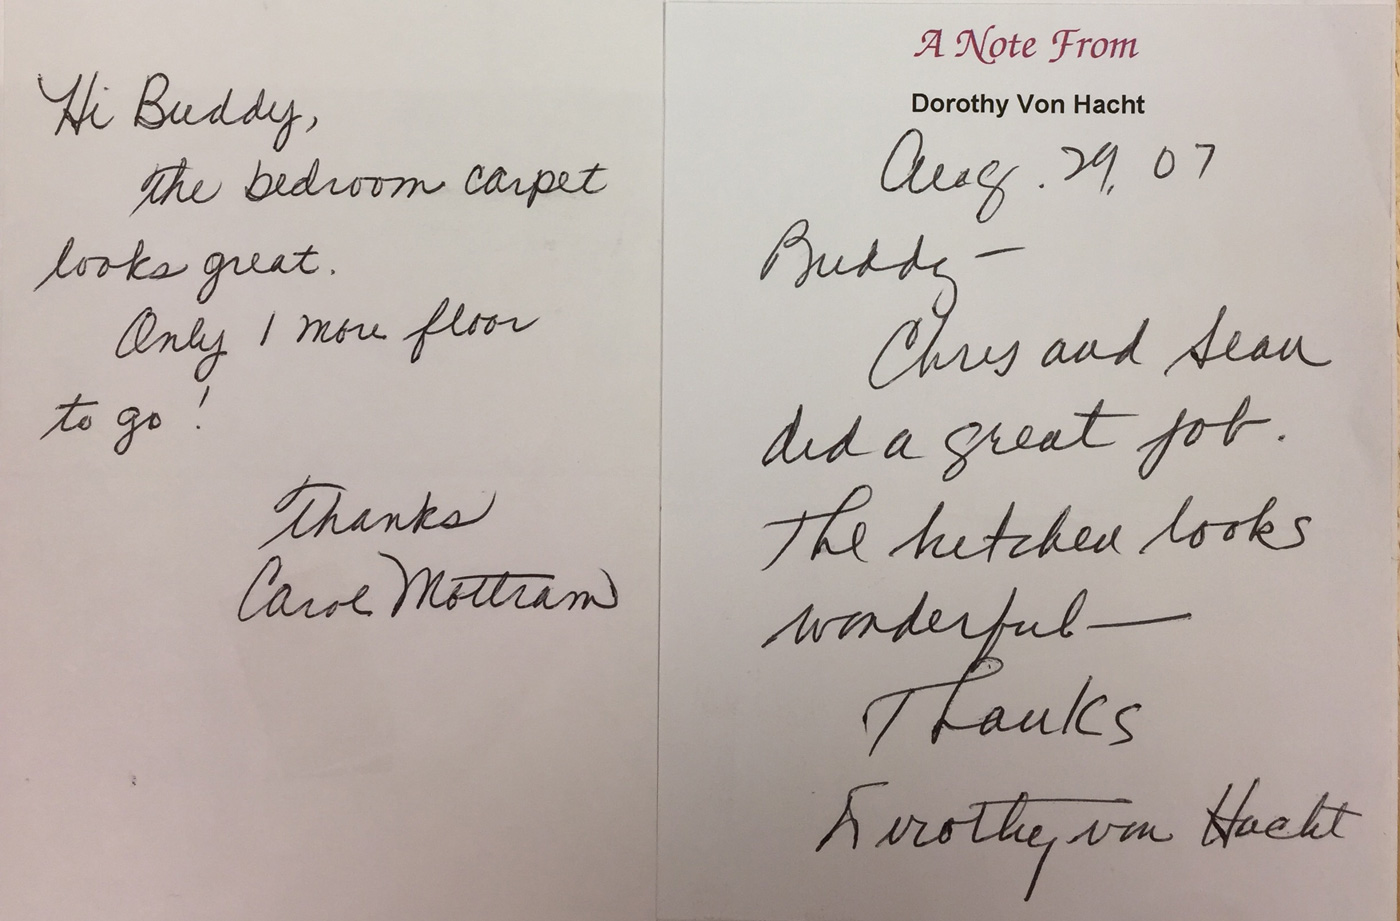 Hi Buddy,
the bedroom carpet
looks great.
Only 1 more floor
to go!
Thanks
Carol Mottram
A Note From
Dorothy Von Hacht
Aug. 29, 07
Buddy —
Chris and Sean
did a great job.
The kitchen looks
wonderful —
Thanks
Dorothy von Hacht